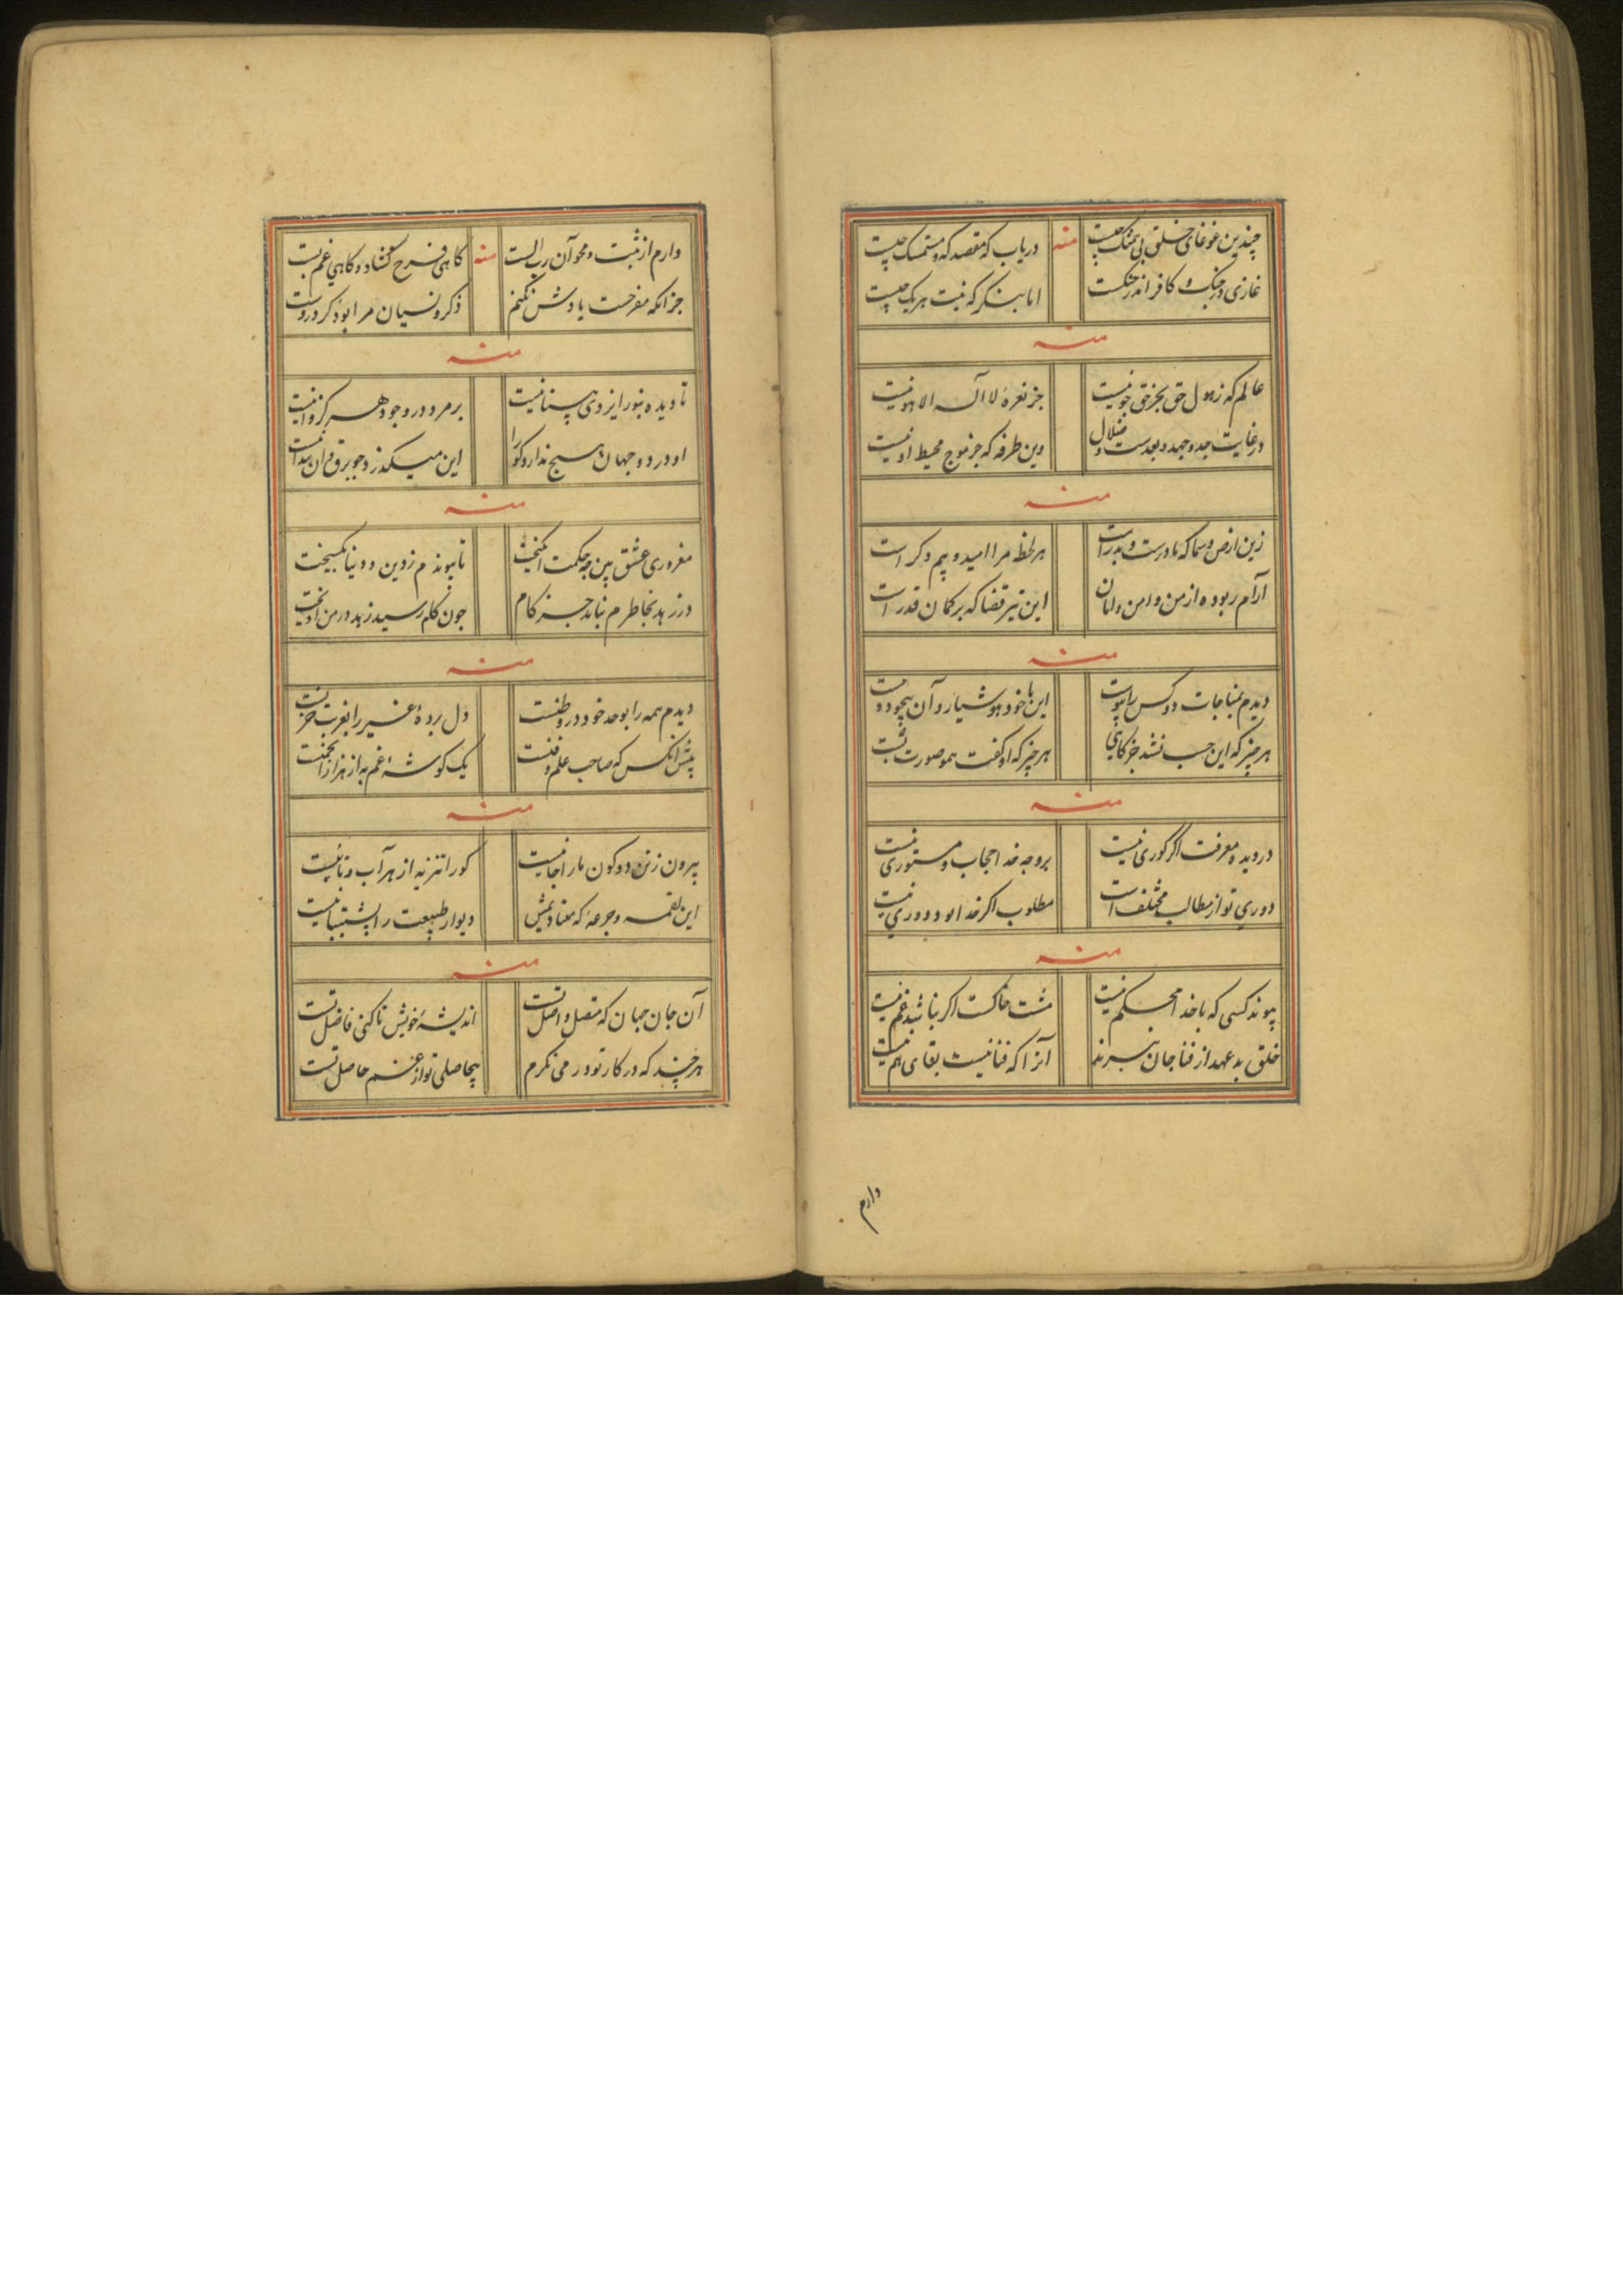 چندین غوغای خلق بی تمسک چیست منه دریاب که مقصد که و متمسک چیست
غازی در جنگ و کافر اندر جنگست اما بنگر که نیت هر یک چیست
منه
عالم که ز هول حق بجز حق جو نیست جز نعره لا اله الا هو نیست
در غایت جد و جهد و بعدست و ضلال وین طرفه که جز موج محیط او نیست
منه
زین ارض و سما که مادرست و پدر است هر لحظه مرا امید و بیم دگر است
آرام ربوده از من و امن و امان این تیر قضا که بر کمان قدر است
منه
دیدم بمناجات دو کس را پیوست این با خود هوشیار و آن بیخود و مست
هر چیز که این جست نشد جز کامی هر چیز که او گفت همو صورت بست
منه
در دید و معرفت اگر کوری نیست بر وجه خدا حجاب و مستوری نیست
دوری تو از مطالب مختلف است مطلوب اگر خدا بود دوری نیست
منه
پیوند کسی که با خدا محکم نیست مشت خاکست اگر نباشد غم نیست
خلق بد عهد از فنا جان نبرند آنرا که فنا نیست بقای هم نیست
دارم
دارم از ثبت و محو آن رب الست منه کاهی فرح گشاد و کاهی غم بست
جز آنکه مفرحست یادش نکنم ذکر و نسیان مرا بود کرد و رست
منه
تا دیده بنور ایزدی بینا نیست بر مرد در وجود هرگز وا نیست
او در دو جهان هیچ ندارد کورا این میگذرد چو برق و آن پیدا نیست
منه
مغروری عشق بین چه حکمت انگیخت تا پیوندم ز دین و دنیا بگسیخت
در زهد بخاطرم نیامد جز کام چون کام رسید زهد در من آویخت
منه
دیدم همه را بوحد خود در وطنست دل برده غیر را بغربت حزنست
پیش آنکس که صاحب علم و فنست یک گوشه غم به از هزار انجمنست
منه
بیرون ز تن دو کون ما را جا نیست کورا تنزیه از هر آب و نانیست
این لقمه و جرعه که معتاد تنش دیوار طبیعت را پشتیبانیست
منه
آن جان جهان که متصل واصل تست اندیشه خویش تا کنی فاضل تست
هر چند که در کار تو در می نگرم بیحاصلی تو از غم حاصل تست